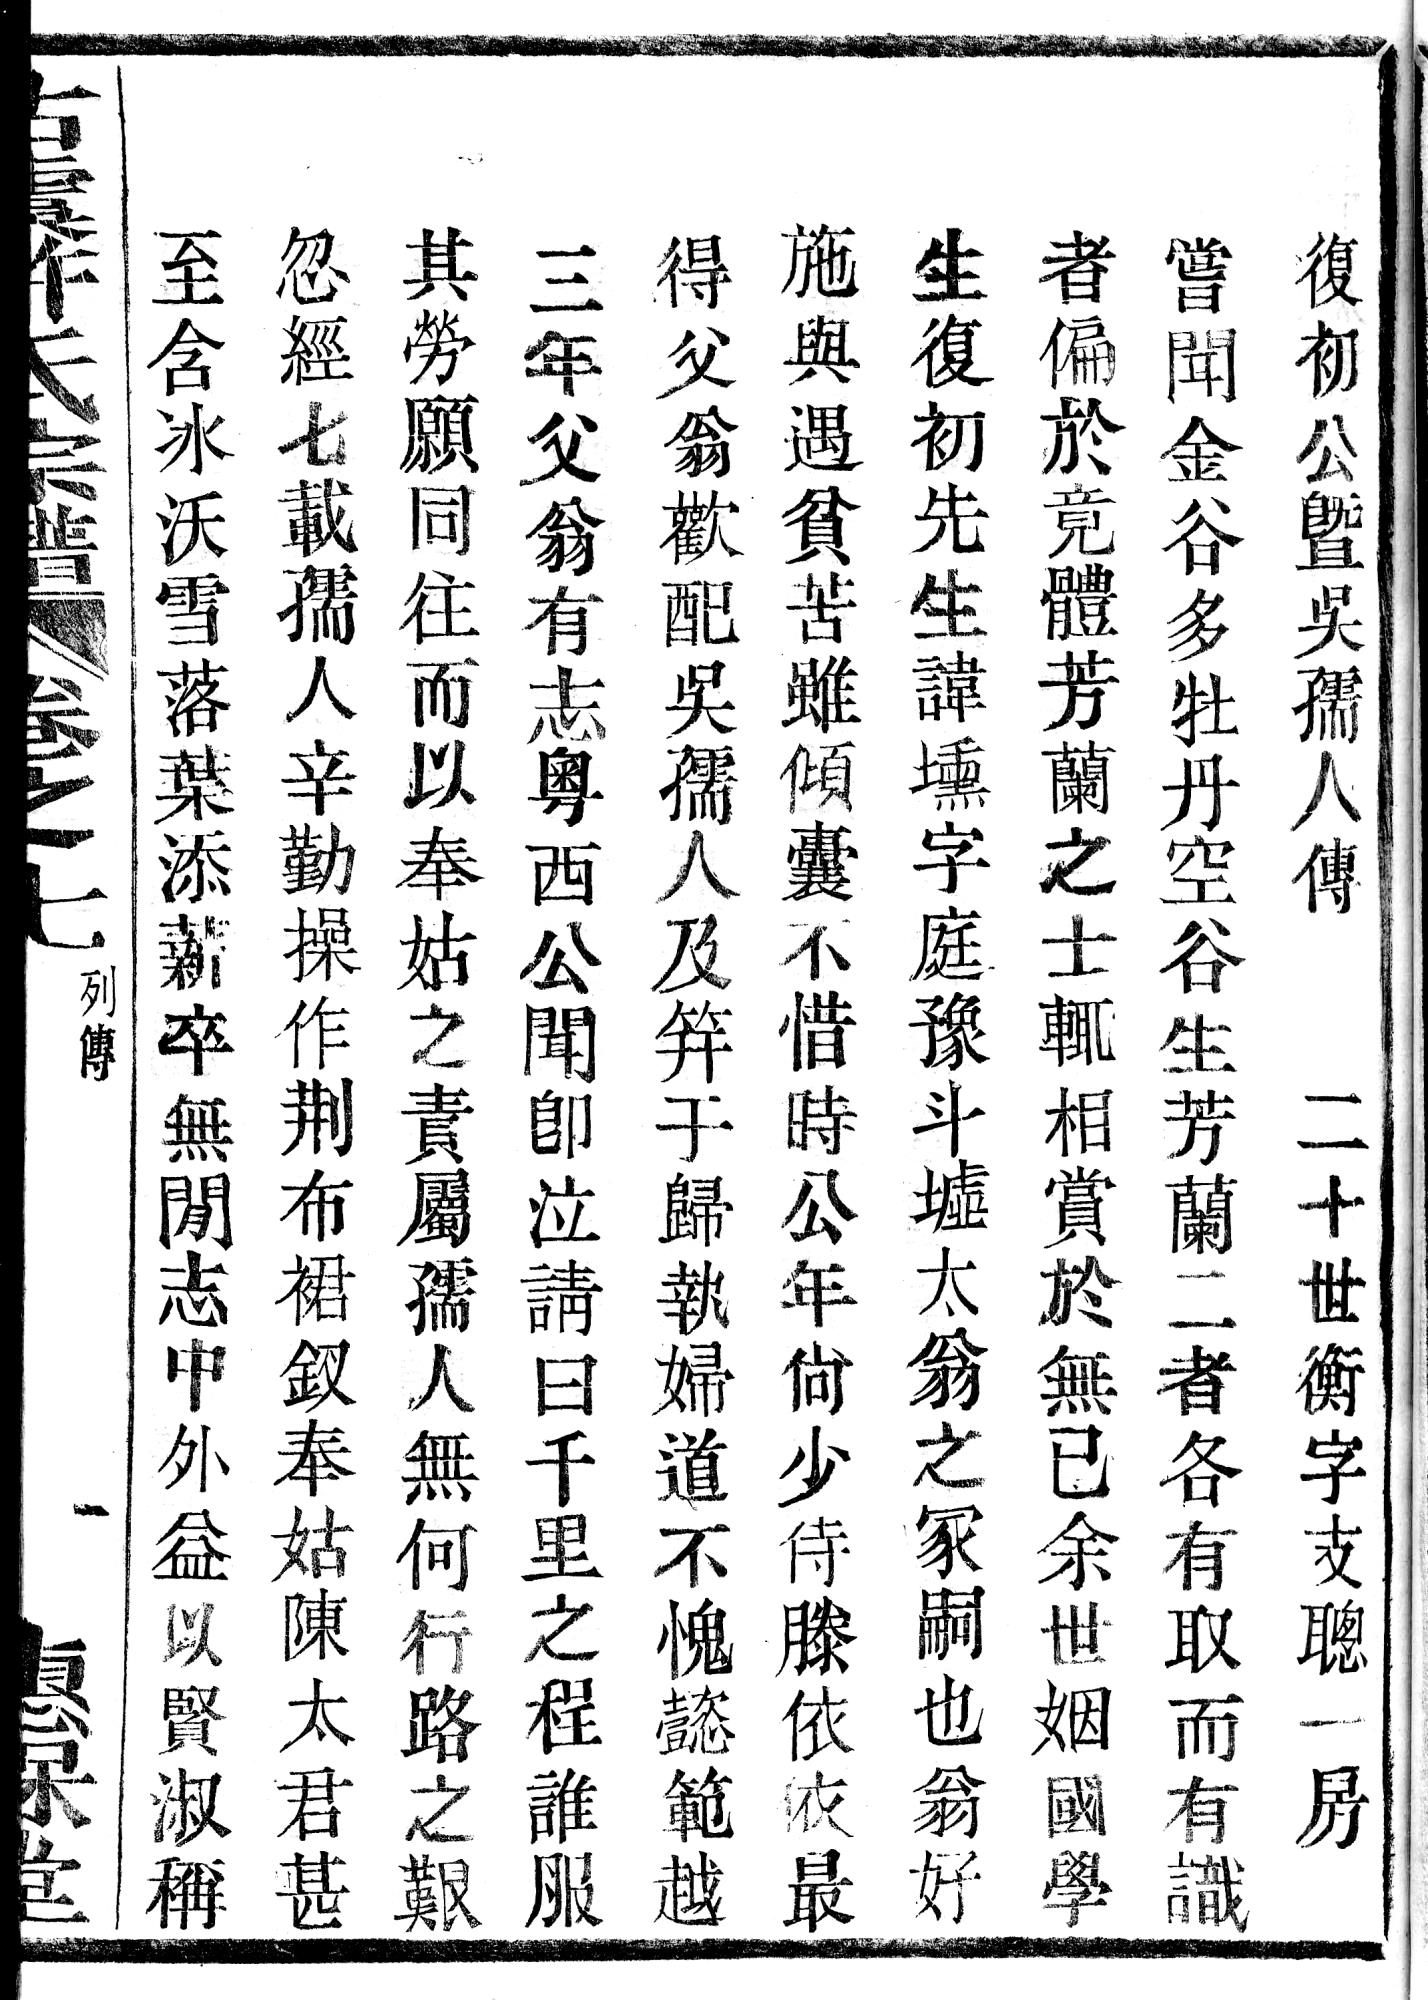 復初公曁吳孺人傳　二十世衡字支聰一房
嘗聞金谷多牡丹空谷生芳蘭二者各有取而有識
者偏於竟體芳蘭之士輒相賞於無已余世姻國學
生復初先生諱壎字庭豫斗墟太翁之冢嗣也翁好
施與遇貧苦雖傾囊不惜時公年尙少侍膝依依最
得父翁歡配吳孺人及笄于歸執婦道不愧懿範越
三年父翁有志粵西公聞卽泣請曰千里之程誰服
其勞願同往而以奉姑之責屬孺人無何行路之艱
忽經七載孺人辛勤操作荆布裙釵奉姑陳太君甚
至含冰沃雪落葉添薪卒無閒志中外益以賢淑稱
氏宗譜　卷之七　列傳　一　堂